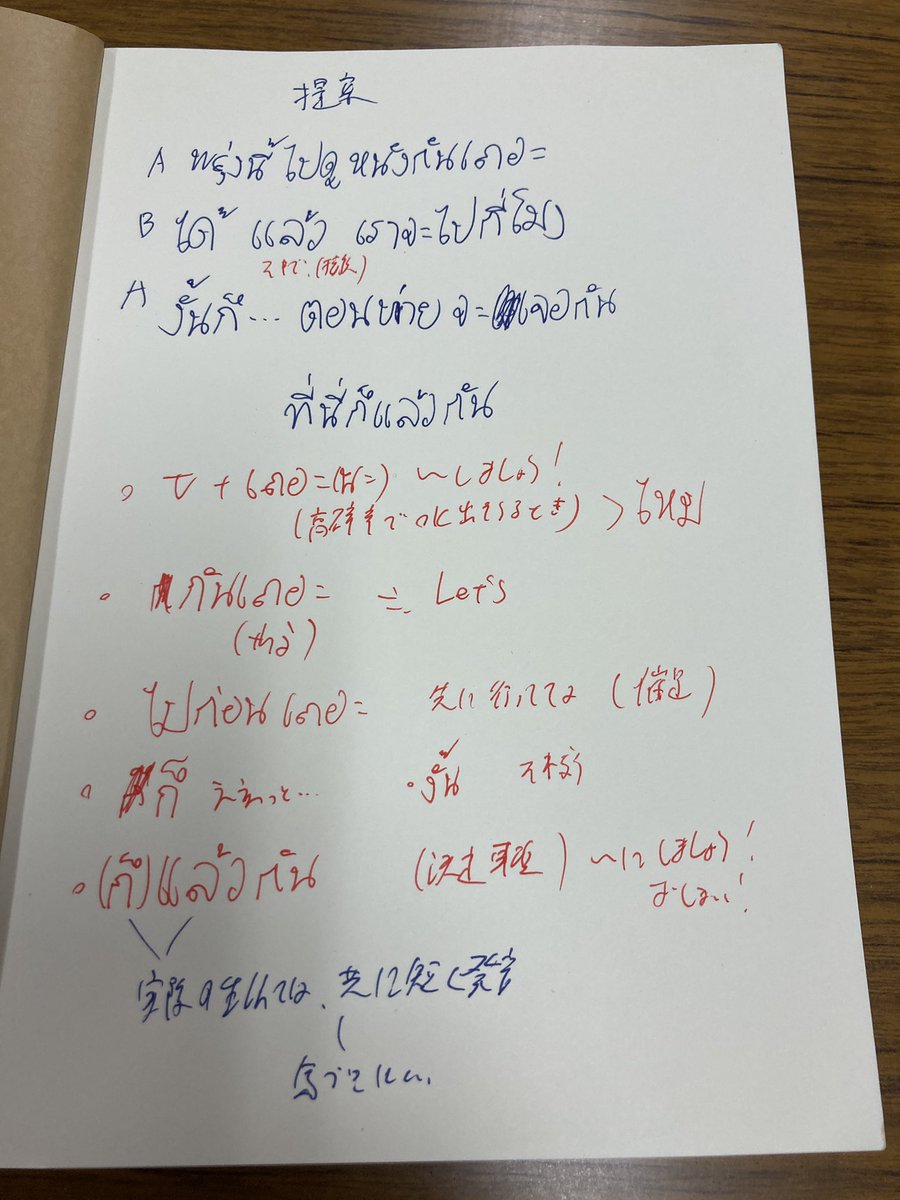 提案
A พรุ่งนี้ ไปดูหนังกันเถอะ
B ได้ แล้ว เราจะไปกี่โมง
それで(接続)
A งั้นก็... ตอนบ่าย จะเจอกัน
ที่นี่ก็แล้วกัน
。V + เถอะ(นะ) 〜しましょう!
(高確率でOK出そうなとき) > ไหม
。กันเถอะ ≒ Let's
。ไปก่อน เถอะ 先に行っててよ (催促)
。ก็ ええっと... ・งั้น それじゃ
。(ก็)แล้วกัน (決定 ) 〜にしましょう!
おしまい!
実際の会話では、共に短く発音